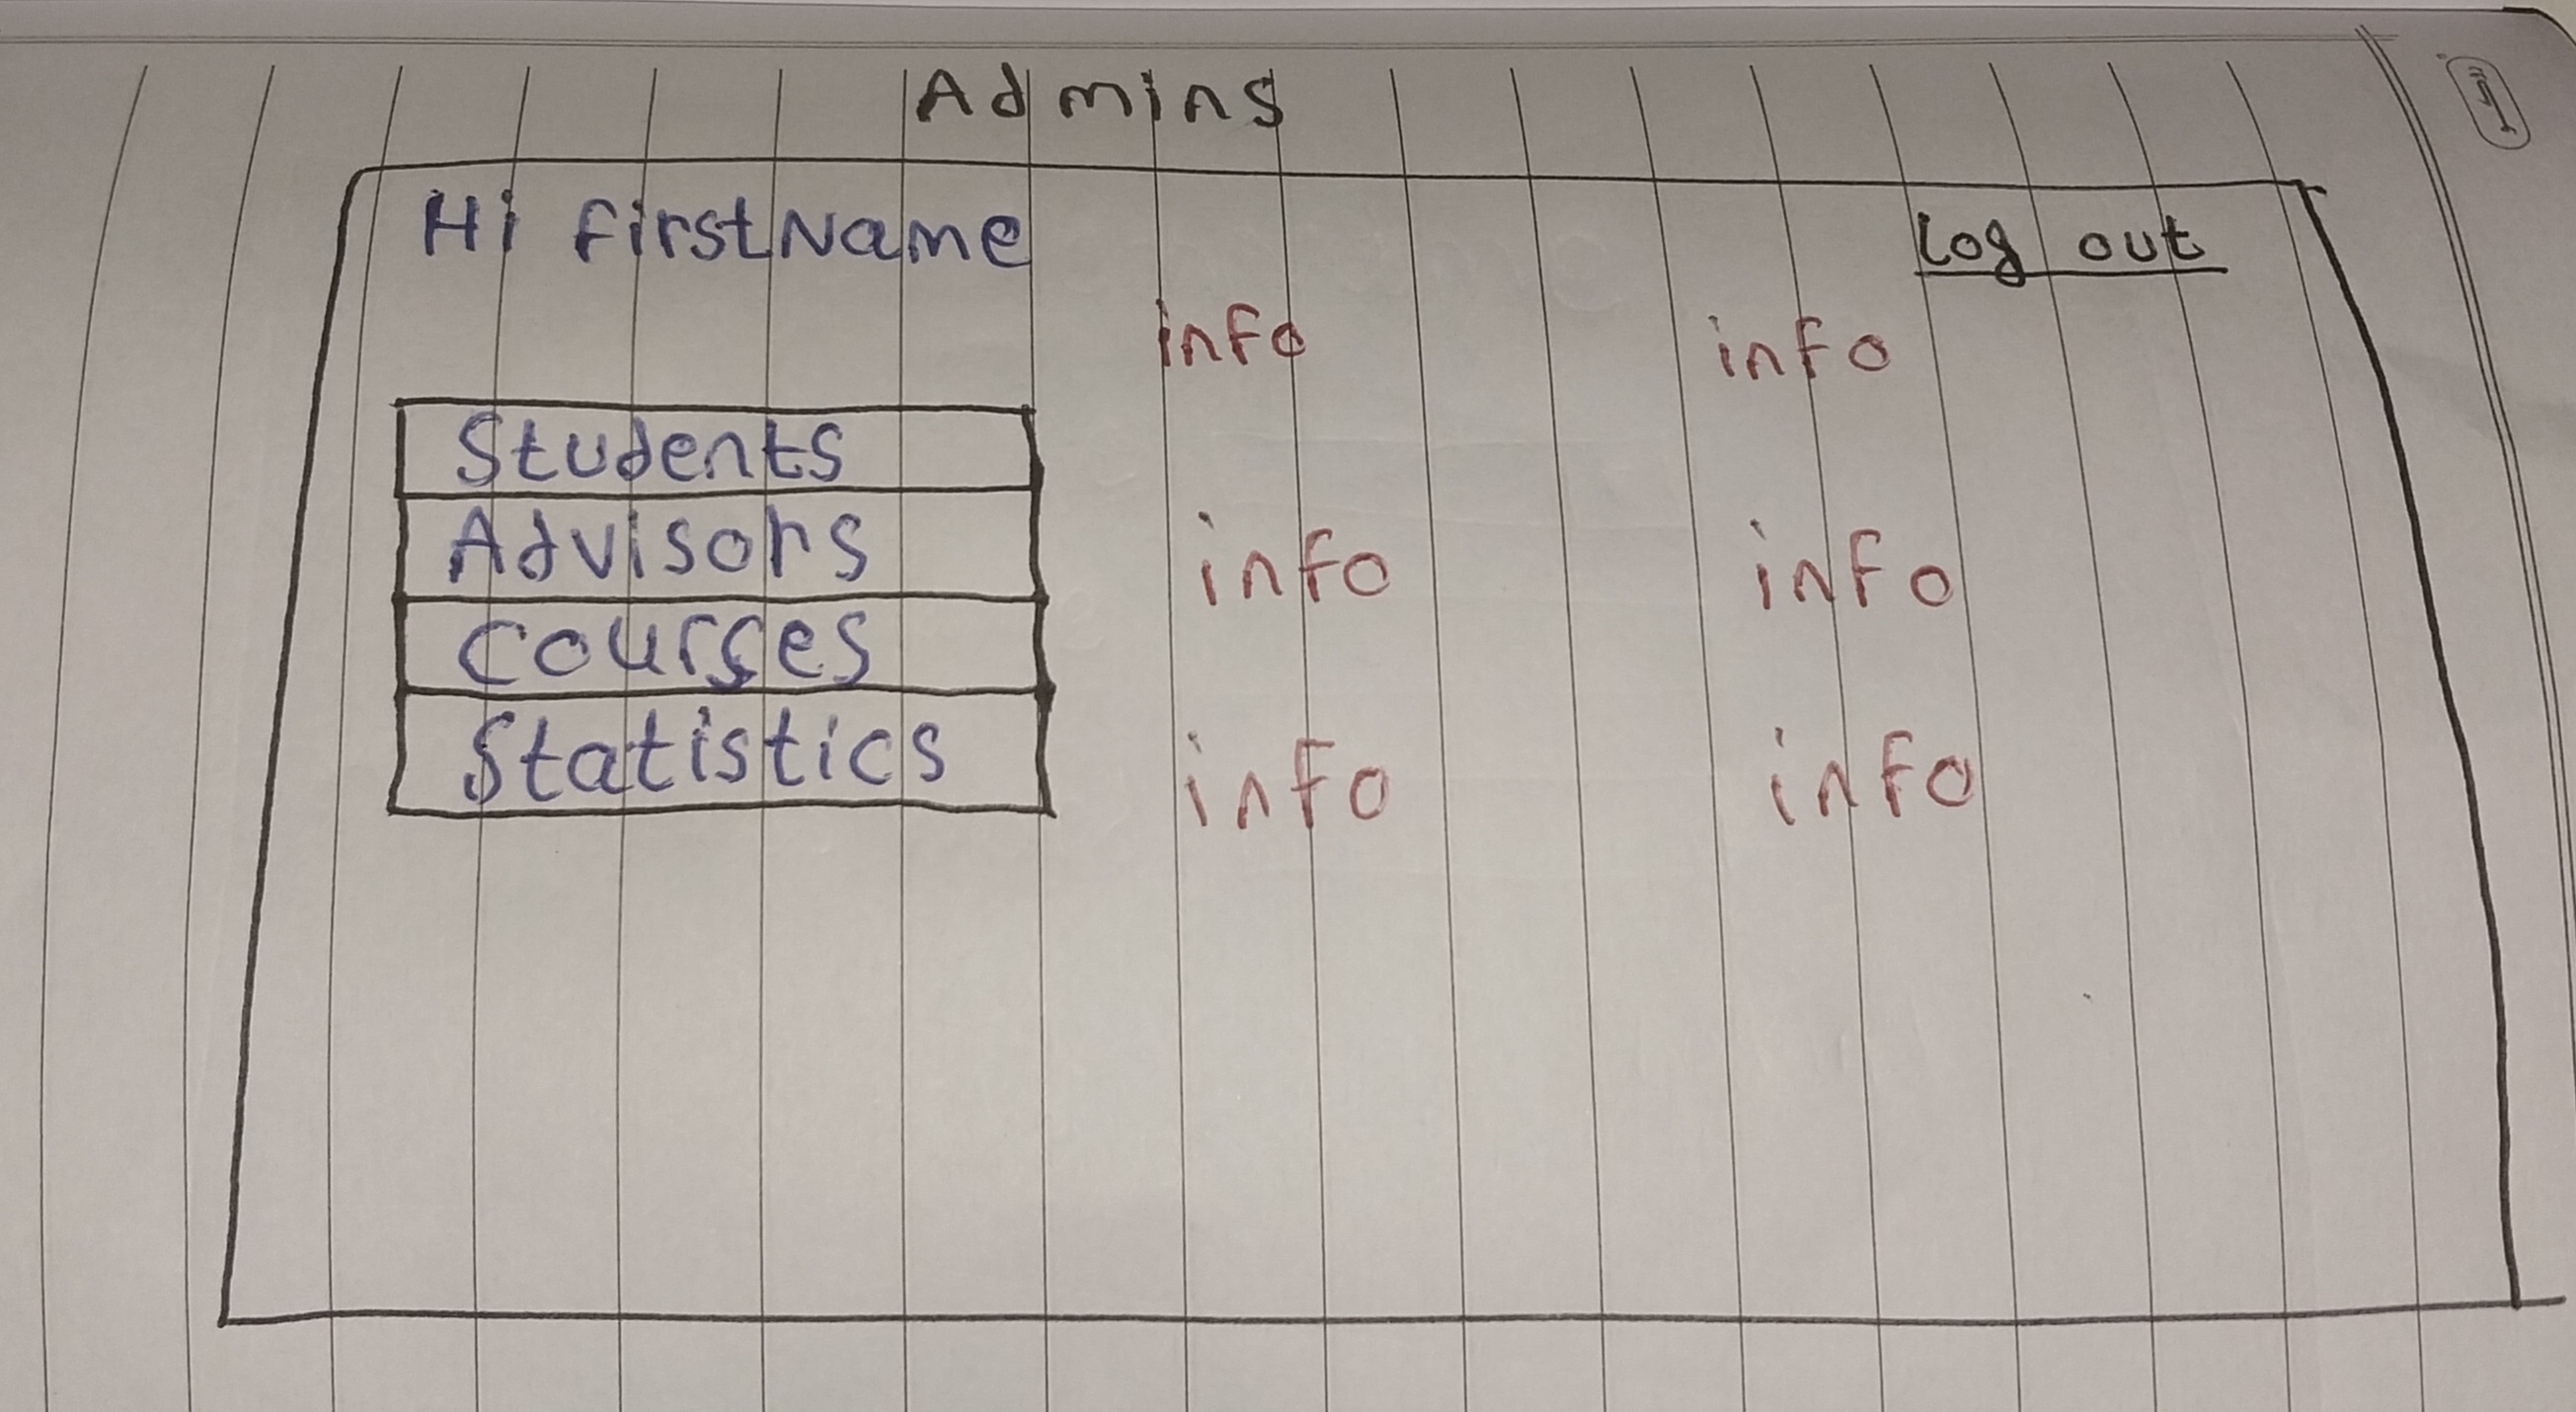 Admins
Hi firstName
Log out
info info
Students
Advisors
info info
Courses
Statistics
info info